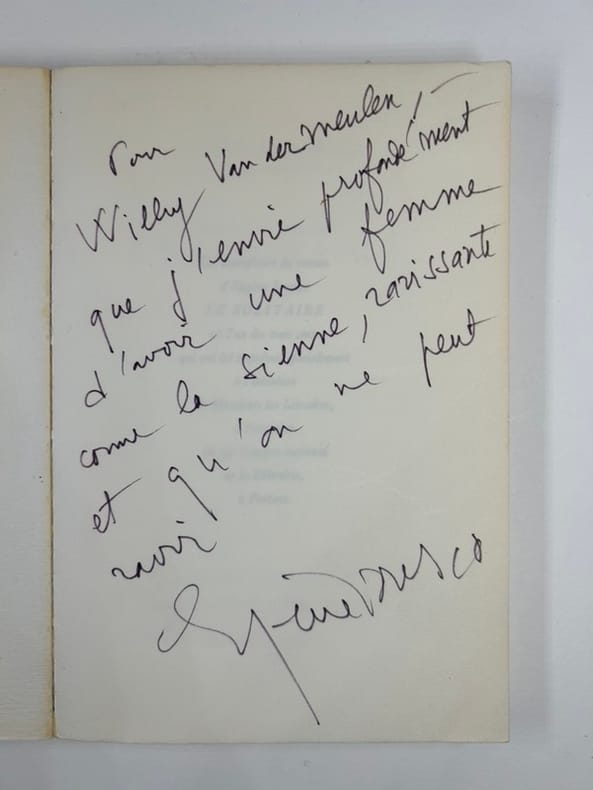 Pour
Willy Van der Meulen, –
que j'envie profondément
d'avoir une femme
comme la sienne, ravissante
et qu'on ne peut
ravir
Eugène Ionesco
LE SOLITAIRE